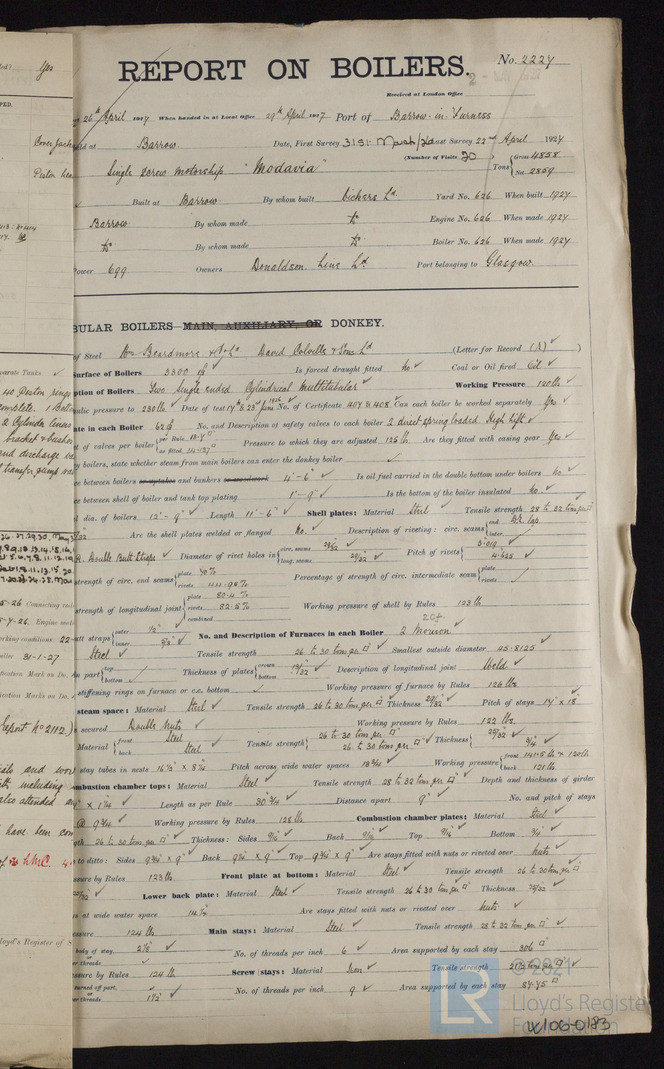 REPORT ON BOILERS.
No. 2227
Received at London Office
26th April 1927 When handed in at Local Office 29th April 1927 Port of Barrow-in-Furness
Barrow Date, First Survey 31st March/26 Last Survey 22nd April 1927
(Number of Visits 20)
Gross 4858
Tons
Net 2859
Single Screw Motorship "Modavia"
Built at Barrow By whom built Vickers Ld. Yard No. 626 When built 1927
Barrow By whom made Do Engine No. 626 When made 1927
Do By whom made Do Boiler No. 626 When made 1927
Power 699 Owners Donaldson Line Ld. Port belonging to Glasgow.
BULAR BOILERS—MAIN, AUXILIARY, OR DONKEY.
of Steel Wm Beardmore & Co Ld David Colville & Sons Ld (Letter for Record (S) )
Surface of Boilers Is forced draught fitted No Coal or Oil fired Oil
ption of Boilers Two Single-ended Cylindrical Multitubular Working Pressure 120 lbs
ulic pressure to 230 lbs Date of test No. of Certificate 407 & 408 Can each boiler be worked separately Yes
ate in each Boiler No. and Description of safety valves to each boiler 2 direct spring loaded High lift
t of valves per boiler Pressure to which they are adjusted 125 lb Are they fitted with easing gear Yes
y boilers, state whether steam from main boilers can enter the donkey boiler
ce between boilers or uptakes and bunkers or woodwork 4'-6" Is oil fuel carried in the double bottom under boilers No
ce between shell of boiler and tank top plating 1'-9" Is the bottom of the boiler insulated No
l dia. of boilers 12'-9" Length 11'-6" Shell plates: Material Steel Tensile strength 28 to 32 tons per □
Are the shell plates welded or flanged No Description of riveting: circ. seams end D.R. lap inter.
R. Double Butt Straps Diameter of rivet holes in circ. seams long. seams 29/32 Pitch of rivets 3.019 4.625
strength of circ. end seams plate 70% rivets 44.95% Percentage of strength of circ. intermediate seam plate rivets
strength of longitudinal joint plate 80.4% rivets 82.5% combined Working pressure of shell by Rules 123 lb
utt straps outer 1/2 inner 5/8 No. and Description of Furnaces in each Boiler 2 Morison
Steel Tensile strength 26 to 30 tons per □ Smallest outside diameter 45.8125
n part top bottom Thickness of plates crown bottom 13/32 Description of longitudinal joint Weld
stiffening rings on furnace or c.c. bottom Working pressure of furnace by Rules 126 lbs
steam space: Material Steel Tensile strength 26 to 30 tons per □ Thickness 29/32 Pitch of stays 17" x 18"
secured Double Nuts Working pressure by Rules 122 lbs
Material front Steel back Steel Tensile strength 26 to 30 tons per □ 26 to 30 tons per □ Thickness 29/32 3/4
stay tubes in nests Pitch across wide water spaces Working pressure front back 121 lbs
mbustion chamber tops: Material Steel Tensile strength 28 to 32 tons per □ Depth and thickness of girder
Length as per Rule 30 3/4 Distance apart 9" No. and pitch of stays
@ 9 3/4 Working pressure by Rules 125 lb Combustion chamber plates: Material Steel
gth 26 to 30 tons per □ Thickness: Sides 9/16 Back 9/16 Top 9/16 Bottom 3/4
to ditto: Sides 9 3/4 x 9 Back Top 9 3/4 x 9 Are stays fitted with nuts or riveted over Nuts
sure by Rules 123 lb Front plate at bottom: Material Steel Tensile strength 26 to 30 tons per □
Lower back plate: Material Steel Tensile strength 26 to 30 tons per □ Thickness 25/32
s at wide water space Are stays fitted with nuts or riveted over Nuts
124 lb Main stays: Material Steel Tensile strength 28 to 32 tons per □
body of stay 2 1/2 No. of threads per inch 6 Area supported by each stay 306 □
or threads
sure by Rules 124 lb Screw stays: Material Iron Tensile strength 21.5 tons per □
turned off part, or threads 1 1/2 No. of threads per inch 9 Area supported by each stay 87.75 □
© 2021
LR Lloyd's Register
Foundation
W106-0183